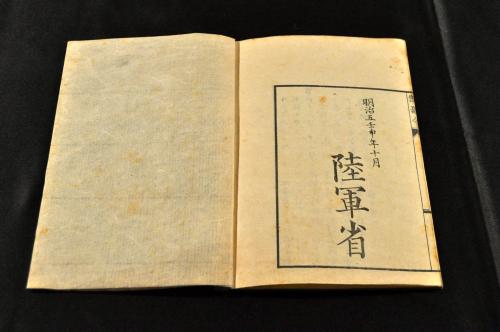 明治五壬申年十月
陸軍省